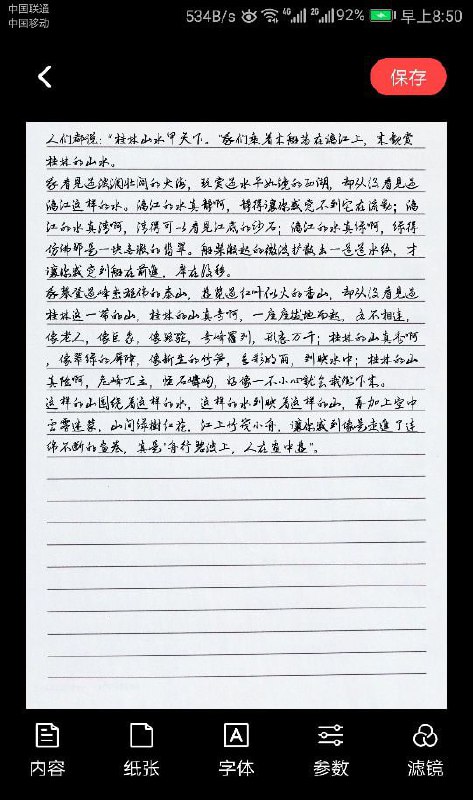 中国联通
中国移动
534B/s 4G 2G 92% 早上8:50
保存
人们都说："桂林山水甲天下。"我们乘着木船荡在漓江上，来观赏
桂林的山水。
我看见过波澜壮阔的大海，玩赏过水平如镜的西湖，却从没看见过
漓江这样的水。漓江的水真静啊，静得让你感觉不到它在流动；漓
江的水真清啊，清得可以看见江底的沙石；漓江的水真绿啊，绿得
仿佛那是一块无瑕的翡翠。船桨激起的微波扩散出一道道水纹，才
让你感觉到船在前进，岸在后移。
我攀登过峰峦雄伟的泰山，游览过红叶似火的香山，却从没看见过
桂林这一带的山，桂林的山真奇啊，一座座拔地而起，各不相连，
像老人，像巨象，像骆驼，奇峰罗列，形态万千；桂林的山真秀啊
，像翠绿的屏障，像新生的竹笋，色彩明丽，倒映水中；桂林的山
真险啊，危峰兀立，怪石嶙峋，好像一不小心就会栽倒下来。
这样的山围绕着这样的水，这样的水倒映着这样的山，再加上空中
云雾迷蒙，山间绿树红花，江上竹筏小舟，让你感到像是走进了连
绵不断的画卷，真是"舟行碧波上，人在画中游"。
内容 纸张 字体 参数 滤镜